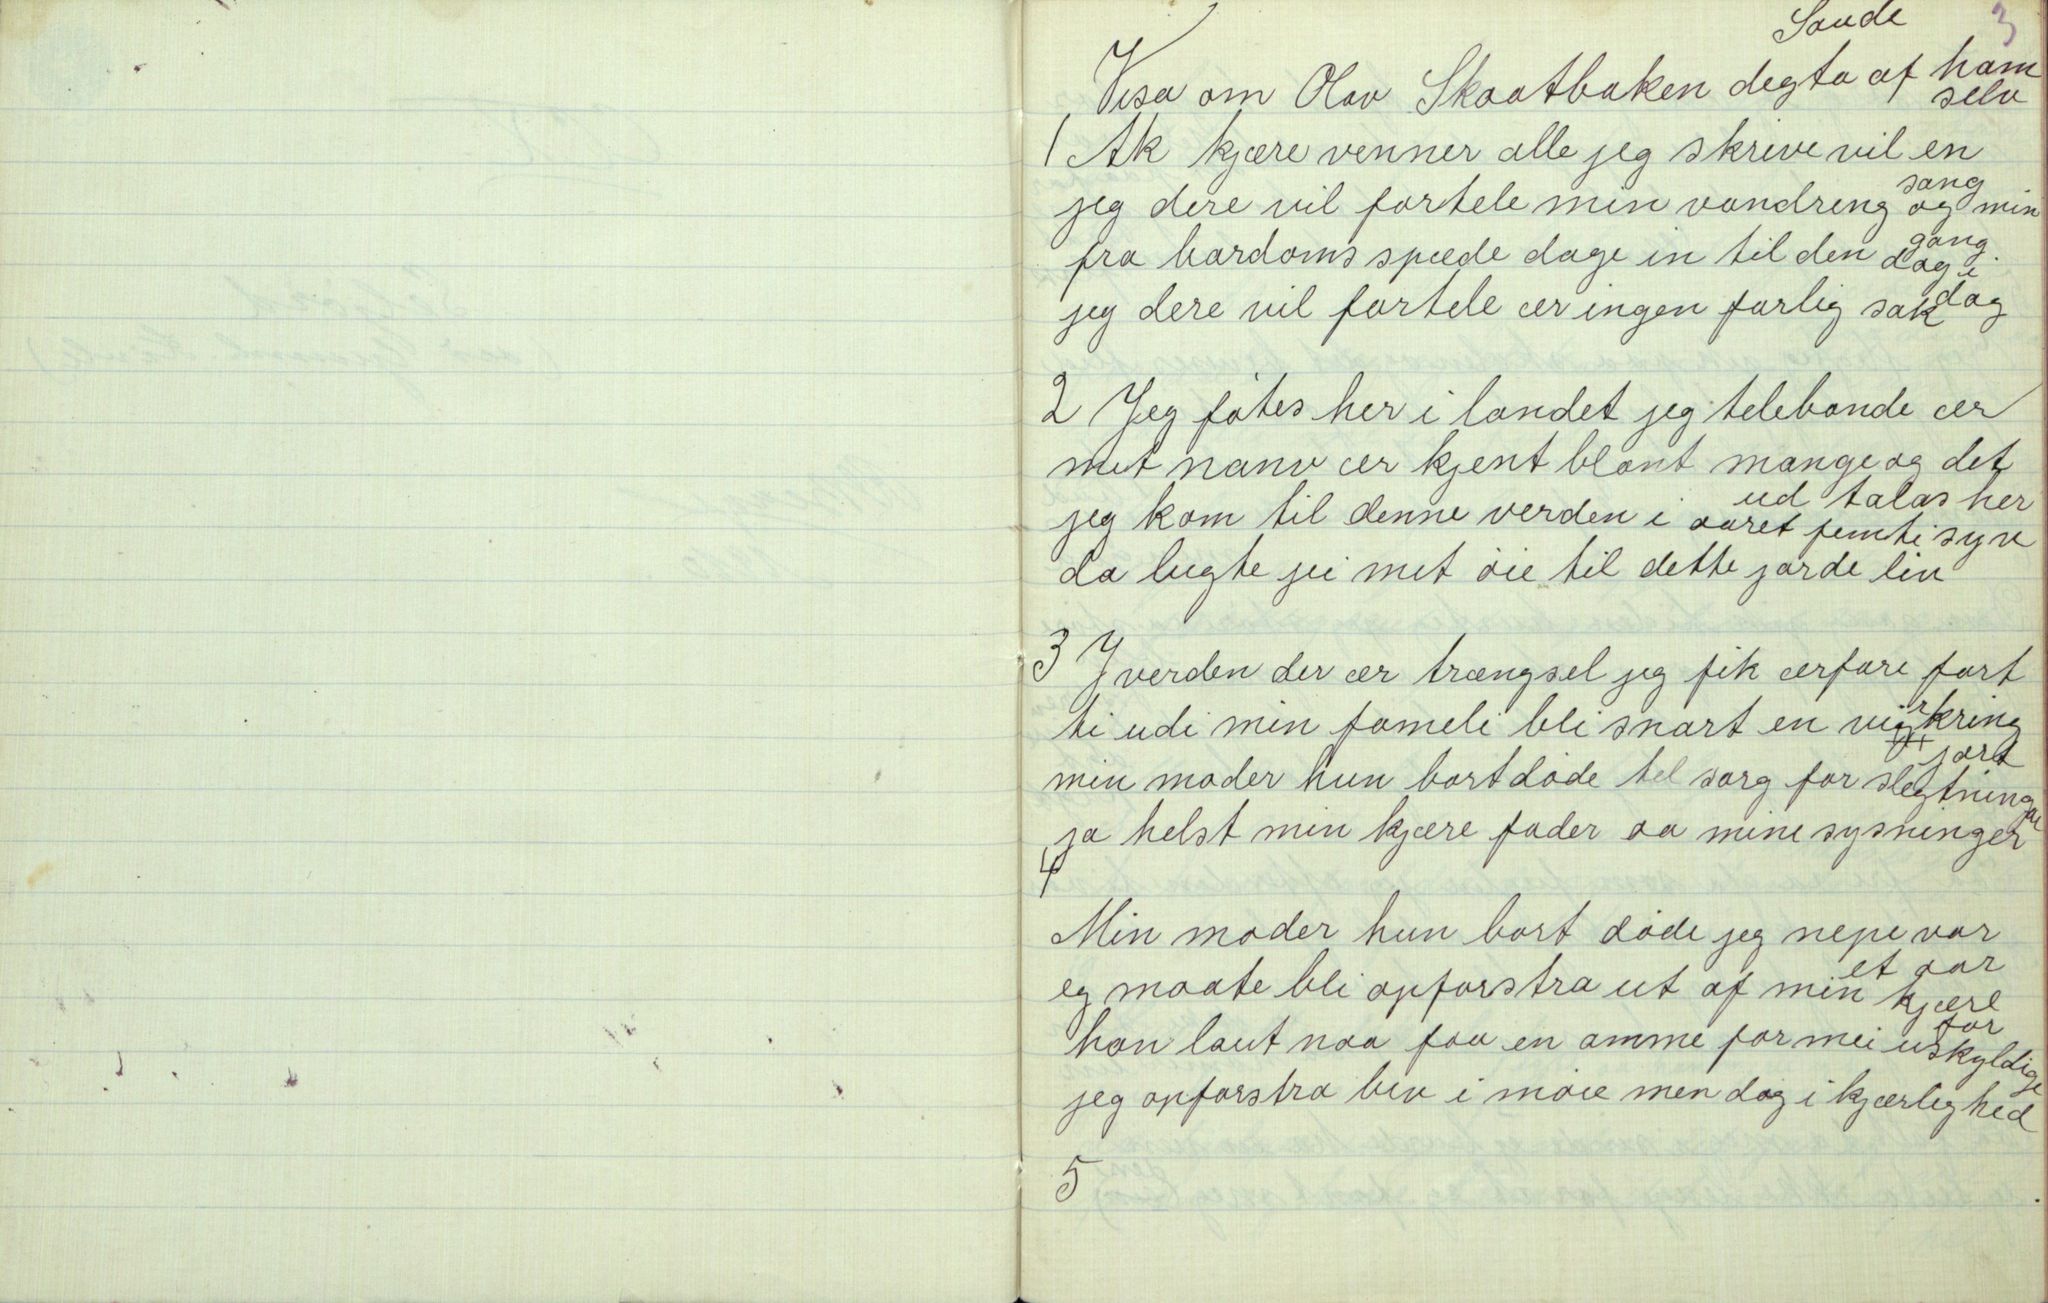 3
Saude
Visa om Olav Skaatbaken degta af ham
selv
1 Ak kjære venner alle jeg skrive vil en
sang
jeg dere vil fortele min vandreng og min
gang
fra bardoms spæde dage in til den dag i
dag
jeg dere vil fortele ær ingen farlig sak
2 Jeg føtes her i landet jeg telebonde ær
mit nanv ær kjent blant mange og det
ud talas her
jeg kom til denne verden i aaret femti syv
da lugte jei mit öie til dette jorde liv
3 I verden der ær trængsel jeg fik ærfare fort
ti udi min fameli bli snart en virkring
jort
min moder hun bortdøde tel sorg for slegtningar
ja helst min kjære fader aa mine sysninger
4
Min moder hun bort døde jeg nepe var
et aar
eg maate bli opforstra ut af min kjære
far
han laut naa faa en amme for mei uskyldige
jeg opforstra blv i möie men dog i kjærleghed
5